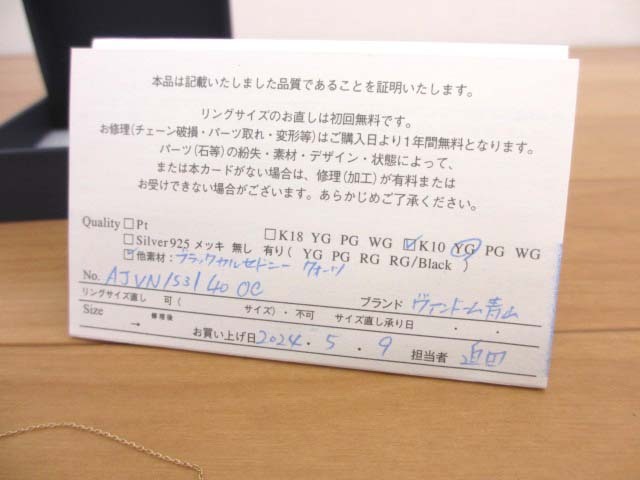 本品は記載いたしました品質であることを証明いたします。
リングサイズのお直しは初回無料です。
お修理(チェーン破損・パーツ取れ・変形等)はご購入日より1年間無料となります。
パーツ(石等)の紛失・素材・デザイン・状態によって、
または本カードがない場合は、修理(加工)が有料または
お受けできない場合がございます。あらかじめご了承ください。
Quality □Pt □K18 YG PG WG ☑K10 YG PG WG
□Silver925 メッキ 無し 有り( YG PG RG RG/Black )
☑他素材:ブラックカルセドニー クォーツ
No. AJVN153140OC ブランド ヴァンドーム青山
リングサイズ直し 可( サイズ)・不可 サイズ直し承り日 ・ ・
Size → 修理後 お買い上げ日 2024.5.9 担当者